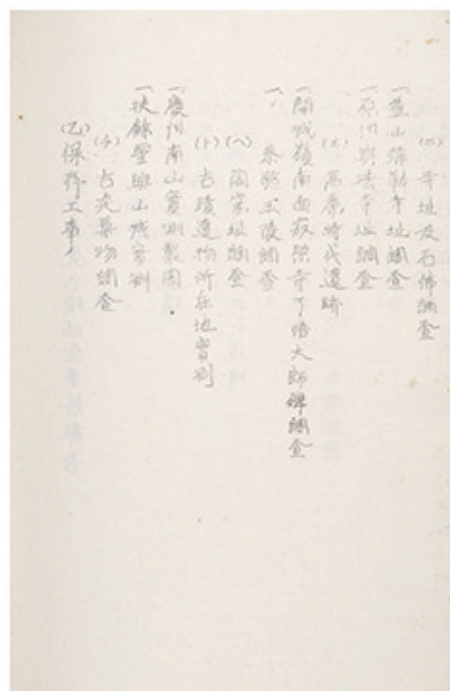 (ニ) 寺址及石佛調査
一 益山彌勒寺址調査
一 原州興法寺址調査
(ホ) 高麗時代遺跡
一 開城嶺南面寂照寺了悟大師碑調査
一、 恭愍王陵調査
(ヘ) 陶窯址調査
(ト) 古蹟遺物所在地實測
一 慶州南山實測製圖
一 扶餘聖興山城實測
(チ) 古建築物調査
(乙) 保存工事